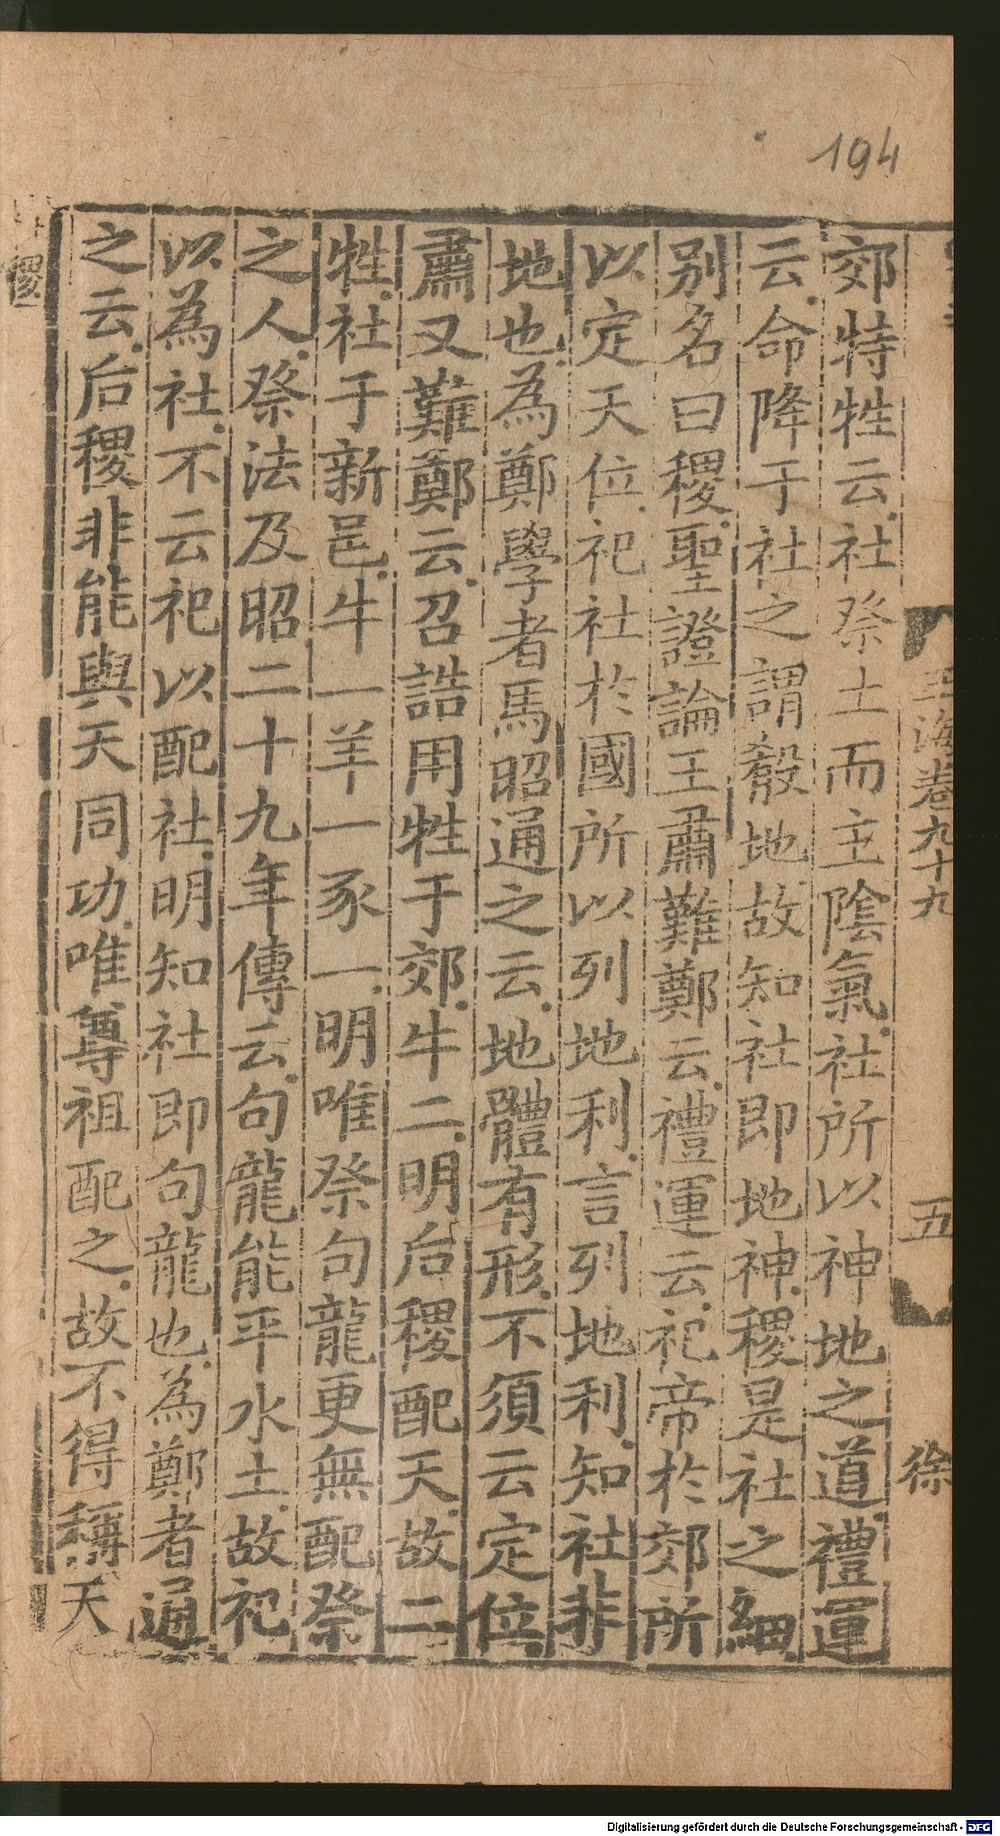 194
玉海卷九十九 五 徐
郊特牲云社祭土而主陰氣社所以神地之道禮運
云命降于社之謂殽地故知社即地神稷是社之細
别名曰稷聖證論王肅難鄭云禮運云祀帝於郊所
以定天位祀社於國所以列地利言列地利知社非
地也為鄭學者馬昭通之云地體有形不須云定位
肅又難鄭云召誥用牲于郊牛二明后稷配天故二
牲社于新邑牛一羊一豕一明唯祭句龍更無配祭
之人祭法及昭二十九年傳云句龍能平水土故祀
以為社不云祀以配社明知社即句龍也為鄭者通
之云后稷非能與天同功唯尊祖配之故不得稱天
稷
Digitalisierung gefördert durch die Deutsche Forschungsgemeinschaft - DFG